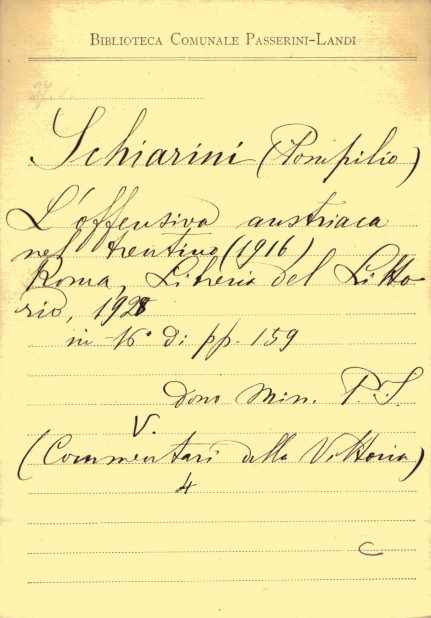 BIBLIOTECA COMUNALE PASSERINI-LANDI
Schiarini (Pompilio)
L'offensiva austriaca
nel trentino (1916)
Roma, Libreria del Litto
rio, 1928
in 16° di pp. 159
Dono Min. P.I.
V.
(Commentari della Vittoria)
4
C